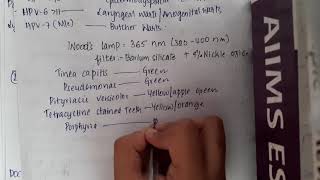 HPV-6 >11 — Laryngeal Warts / Anogenital Warts
HPV-7 (N/c) — Butcher Warts
Wood's lamp - 365 nm (300-400 nm)
filter - Barium silicate + 9% Nickle oxide
Tinea capitis — Green
Pseudomonas — Green
Pityriasis versicolor — Yellow/apple Green
Tetracycline stained Teeth — Yellow/orange
Porphyria
AIIMS ES
DOC